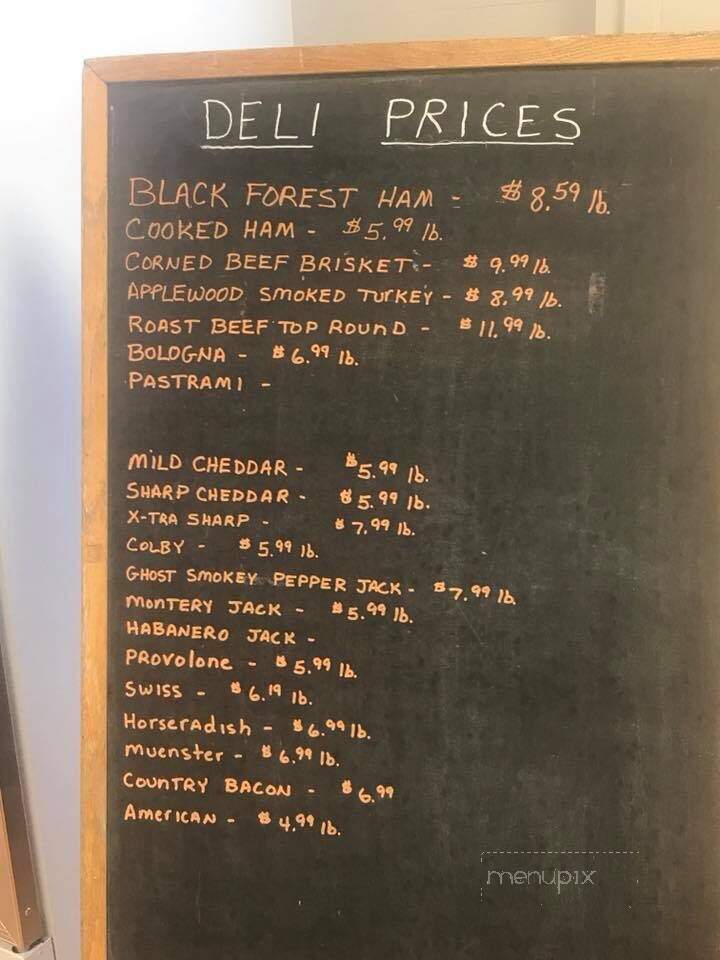 DELI PRICES
BLACK FOREST HAM - $8.59 lb.
COOKED HAM - $5.99 lb.
CORNED BEEF BRISKET - $9.99 lb.
APPLEWOOD SMOKED TURKEY - $8.99 lb.
ROAST BEEF TOP ROUND - $11.99 lb.
BOLOGNA - $6.99 lb.
PASTRAMI -
MILD CHEDDAR - $5.99 lb.
SHARP CHEDDAR - $5.99 lb.
X-TRA SHARP - $7.99 lb.
COLBY - $5.99 lb.
GHOST SMOKEY PEPPER JACK - $7.99 lb.
MONTERY JACK - $5.99 lb.
HABANERO JACK -
PROVOLONE - $5.99 lb.
SWISS - $6.19 lb.
HORSERADISH - $6.99 lb.
MUENSTER - $6.99 lb.
COUNTRY BACON - $6.99
AMERICAN - $4.99 lb.
menupix